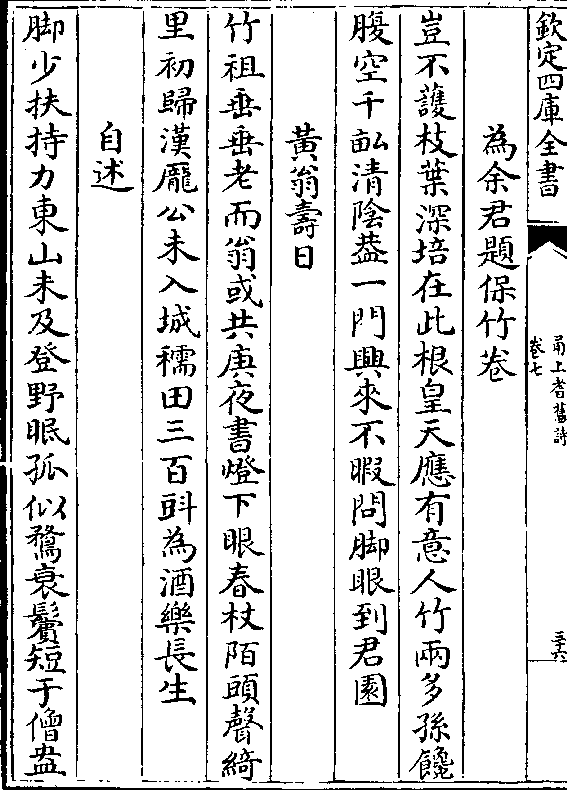 欽定四庫全書
甬上耆舊詩
卷七
三六
為余君題保竹卷
豈不護枝葉深培在此根皇天應有意人竹兩多孫饞
腹空千畝清陰葢一門興來不暇問脚眼到君園
黃翁壽日
竹祖垂垂老而翁或共庚夜書燈下眼春杖陌頭聲綺
里初歸漢龐公未入城穤田三百㪷為酒樂長生
自述
脚少扶持力東山未及登野眠孤似鶩衰鬢短于僧盎